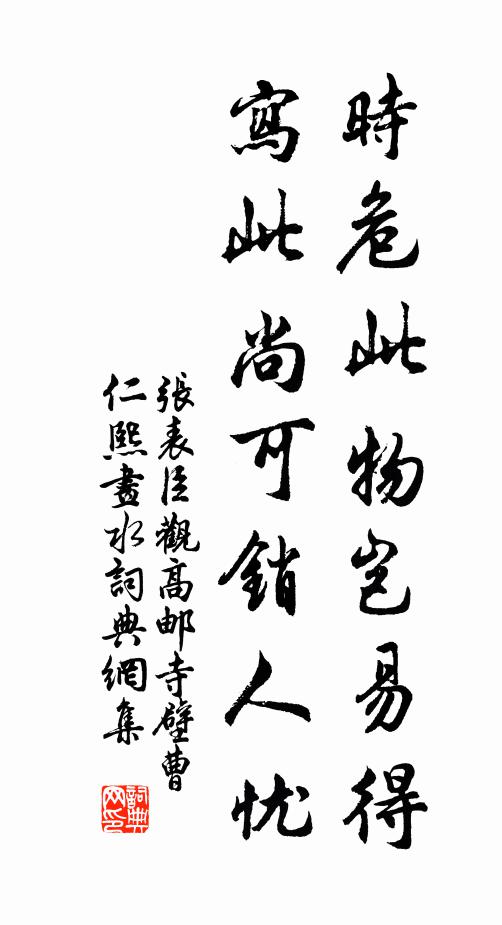 時危此物豈易得
寫此尚可銷人忧
張表臣觀高邮寺壁曹
仁熙畫水詞典網集
詞典
网印